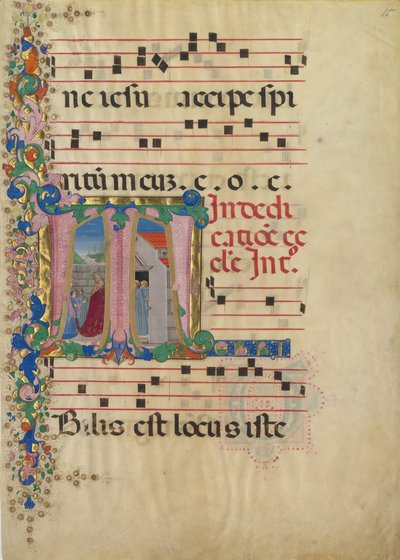 15
ne iesu accipe spi
ritum meuz. e. o. e.
In dedi
catiōe ec
cl'ie Int°.
Bilis est locus iste